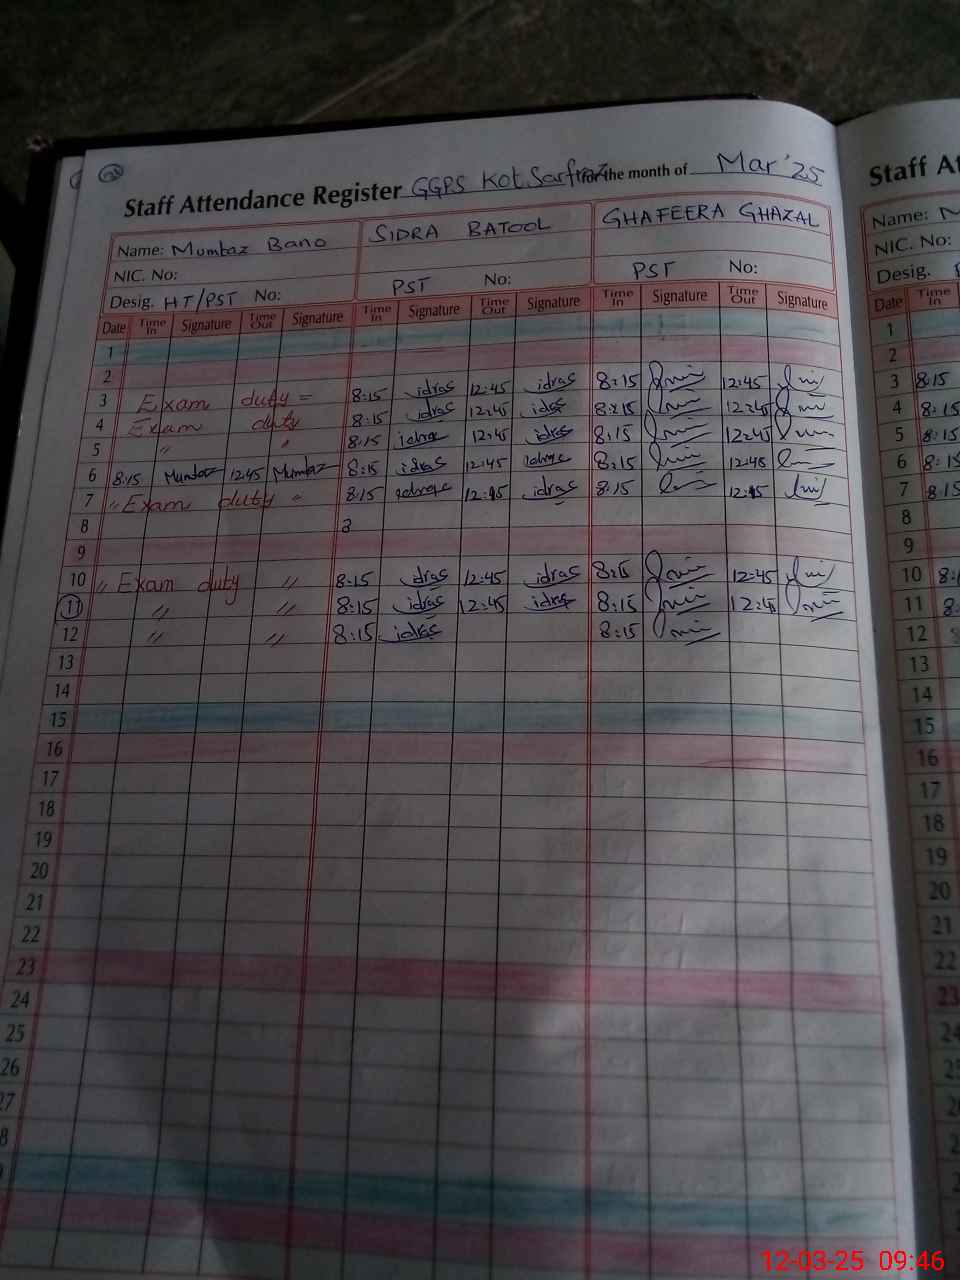 Staff Attendance Register GGPS Kot Sarfraz for the month of Mar '25
Name: Mumtaz Bano SIDRA BATOOL GHAFEERA GHAZAL
NIC. No:
Desig. HT/PST No: PST No: PST No:
Date Time In Signature Time Out Signature Time In Signature Time Out Signature Time In Signature Time Out Signature
1
2
3 Exam duty = 8:15 idras 12:45 idras 8:15 12:45
4 Exam duty 8:15 idras 12:45 idras 8:15 12:45
5 " " 8:15 12:45 idras 8:15 12:45
6 8:15 Mumtaz 12:45 Mumtaz 8:15 idras 12:45 8:15 12:45
7 " Exam duty " 8:15 12:45 idras 8:15 12:45
8
9
10 " Exam duty " 8:15 idras 12:45 idras 8:15 12:45
11 " " 8:15 idras 12:45 idras 8:15 12:45
12 " " 8:15 idras 8:15
13
14
15
16
17
18
19
20
21
22
23
24
25
26
27
8
Staff At
Name: M
NIC. No:
Desig.
Date Time In
1
2
3 8:15
4 8:15
5 8:15
6 8:15
7 8:15
8
9
10 8:
11 8:
12
13
14
15
16
17
18
19
20
21
22
23
24
12-03-25 09:46